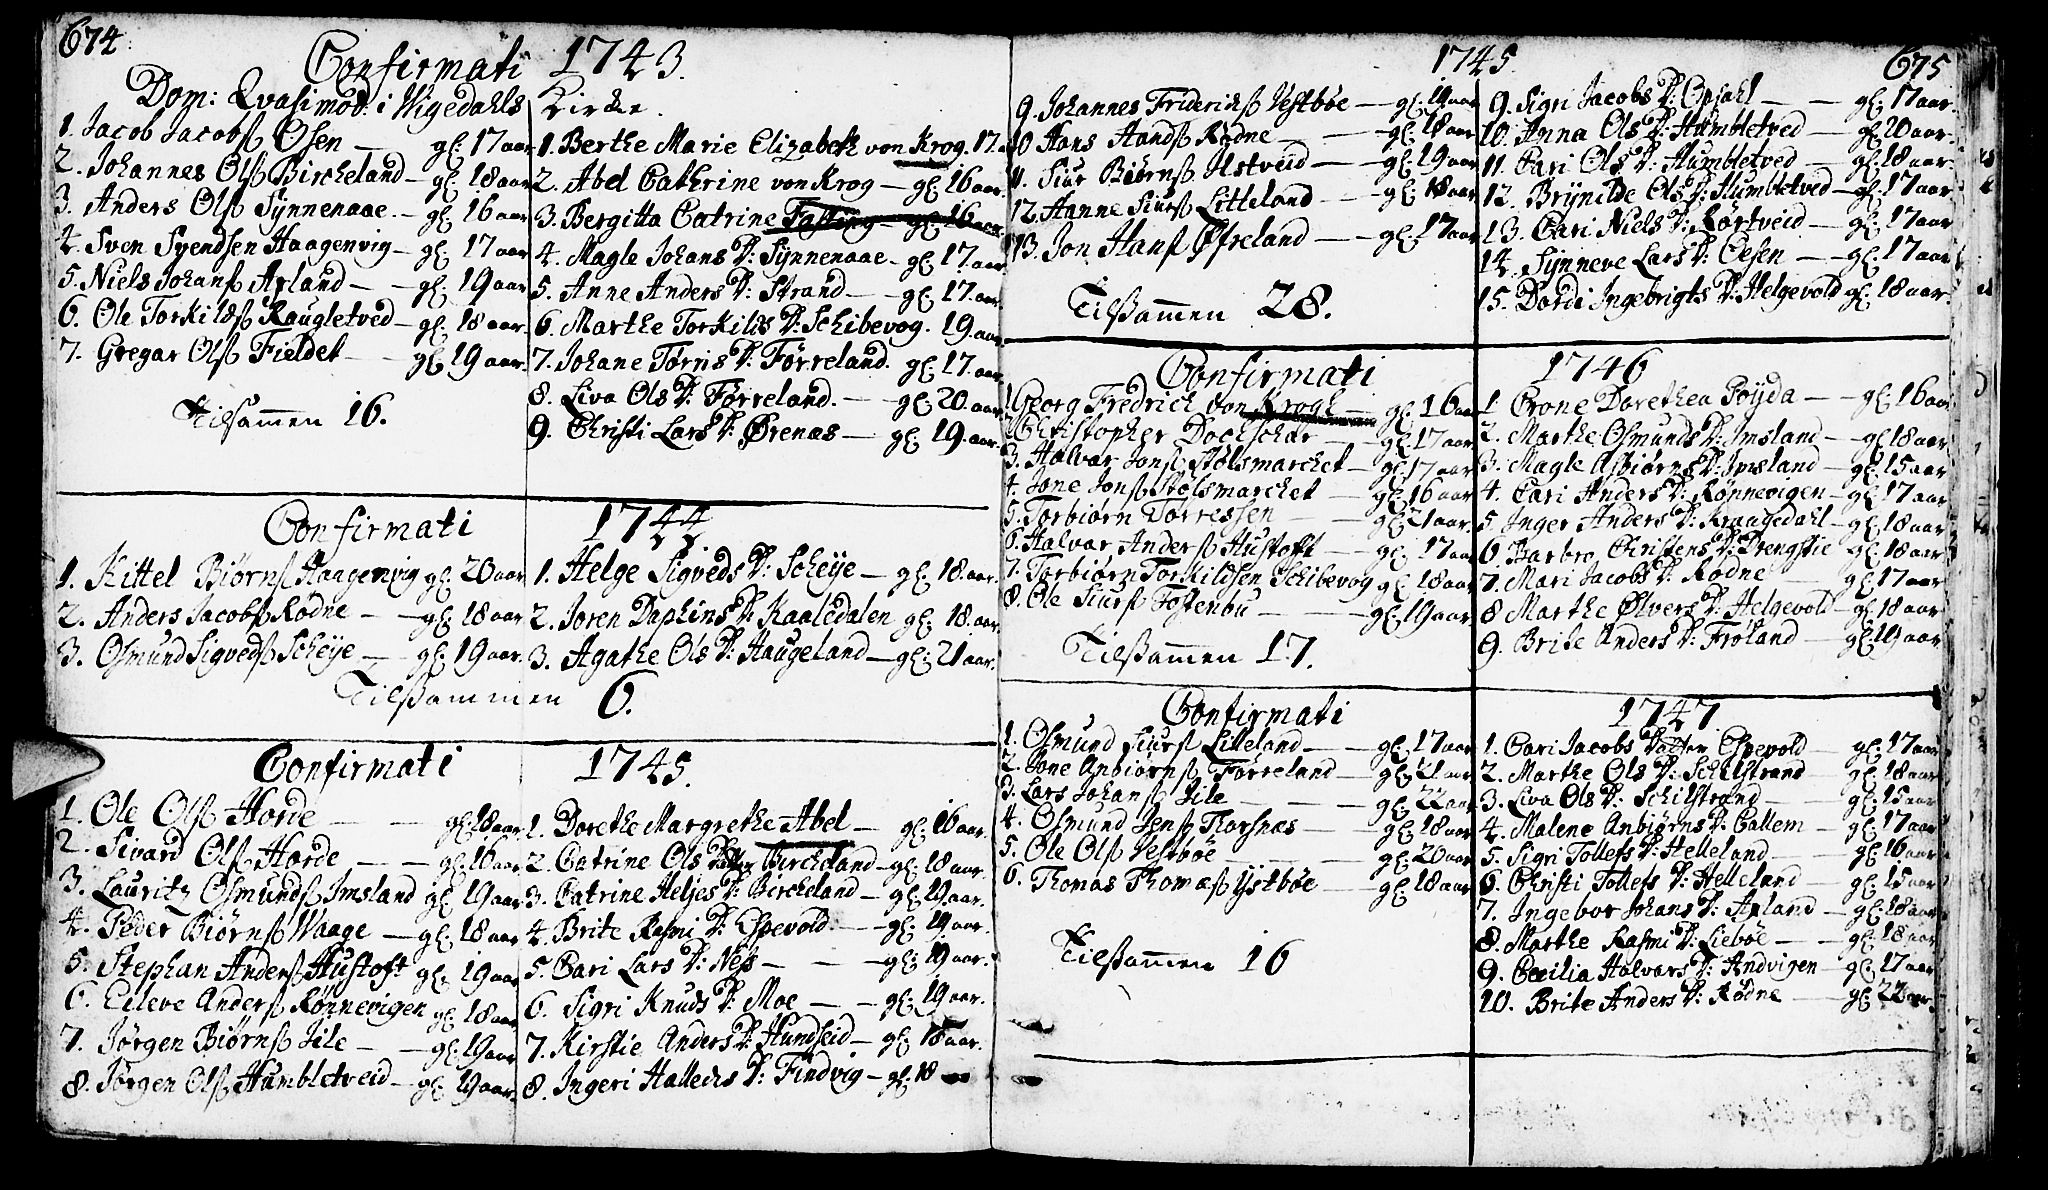 674
Confirmati 1743.
Dom: Qvasimod: i Wigedahls Kirke.
1. Jacob Jacobsß Osen — gl: 17 aar
2. Johannes Olsß Bircheland — gl: 18 aar
3. Anders Olsß Synnenaae. — gl: 16 aar
4. Sven Svendsen Haagenvig — gl: 17 aar
5. Niels Johansß Apland — gl: 19 aar
6. Ole Torkildsß Raugletved — gl: 18 aar.
7. Gregar Olsß Fieldet — gl: 19 aar.
Tilsamen 16.
1. Berthe Marie Elizabeth von Krog. 17.
2. Abel Cathrine von Krog — gl: 16 aar.
3. Bergitta Catrine Fasting — gl: 16 aar.
4. Magle Johans D: Synnenaae — gl: 17. aar
5. Anne Anders D: Strand — gl: 17. aar.
6. Marthe Torkilds D: Schibevog. 19. aar
7. Johane Tørris D: Førreland. gl: 17. aar.
8. Siva Ols D: Førreland. — gl: 20. aar
9. Christi Lars D: Ørenæs — gl: 19. aar.
Confirmati 1744
1. Kittel Biørnsß Haagenvig gl: 20 aar
2. Anders Jacobsß Rødne — gl: 18 aar
3. Osmund Sigvedsß Scheye — gl: 19 aar.
1. Helge Sigveds D: Scheye — gl: 18. aar.
2. Joren Daphins D: Kaaledalen gl: 18. aar.
3. Agathe Ols D: Haugeland — gl: 21 aar.
Tilsammen 6.
Confirmati 1745.
1. Ole Olsß Horde — gl: 18 aar
2. Sivard Olsß Horde — gl: 16 aar
3. Lauritz Osmundsß Imsland gl: 19 aar
4. Peder Biørnsß Waage — gl: 18 aar
5. Stephan Andersß Hustoft gl: 19 aar
6. Eileve Andersß Rønnevigen gl: 18 aar
7. Jørgen Biørnsß Iile — gl: 19 aar
8. Jørgen Olsß Humbletveid — gl: 19 aar.
1. Dorethe Margrethe Abel — gl: 16 aar.
2. Catrine Ols Datter Bircheland — gl: 18 aar.
3. Catrine Heljes D: Bircheland — gl: 19 aar.
4. Brite Rasmi D: Espevold — gl: 19 aar.
5. Cari Lars D: Ness — gl: 19 aar.
6. Sigri Knuds D: Moe — gl: 19 aar.
7. Kirstie Anders D: Hundseid — gl: 18 aar.
8. Ingeri Halleds D: Findvig — gl: 18
1745. 675
9. Johannes Friderichsß Vestbøe — gl: 19 aar
10 Hans Handsß Rødne — gl: 18 aar
11. Siur Biørnsß Ustveid — gl: 19 aar
12. Hanne Siursß Litleland — gl: 18 aar
13. Jon Hansß Øfreland — gl: 17 aar
Tilsammen 28.
9. Sigri Jacobs D: Opsahl — gl: 17 aar.
10. Anna Ols D: Humbletved — gl: 20 aar.
11. Cari Ols D: Humbletved — gl: 18 aar.
12. Brynilde Ols D: Humbletved — gl: 17 aar.
13. Cari Niels D: Rørtveid — gl: 17 aar
14. Synneve Lars D: Oesen — gl: 17 aar
15. Dordi Ingebrigts D: Helgevold gl: 18 aar.
Confirmati 1746
1 Georg Fredrich von Krogh — gl: 16 aar
2. Christopher Dochschar — gl: 17 aar
3. Halvar Jonsß Stølsmarchet — gl: 17 aar
4. Jone Jonsß Stølsmarchet — gl: 16 aar
5. Torbiørn Torressen — gl: 21 aar.
6. Halvar Andersß Hustoft — gl: 17 aar
7. Torbiørn Torkildsen Schibevog gl: 18 aar
8. Ole Siursß Tostenbu — gl: 19 aar
Tilsammen 17.
1 Crone Dorethea Poyda — gl: 16 aar
2. Marthe Osmunds D: Imsland — gl 18 aar
3. Magle Asbiørns D: Imsland — gl: 15 aar
4. Cari Anders D: Rønnevigen — gl: 17 aar
5. Inger Anders D: Kraagedahl — gl: 18 aar
6 Barbro Christens D: Drengstie gl: 18 aar
7. Mari Jacobs D: Rødne — gl: 17 aar
8 Marthe Ølvers D: Helgevold — gl: 18 aar
9. Brite Anders D: Frøland — gl: 19 aar
Confirmati 1747
1. Osmund Siursß Lilleland — gl: 17 aar
2. Jone Anbiørnsß Førreland — gl: 21 aar
3. Lars Johansß Iile — gl: 22 aar
4. Osmund Jensß Thorsnæs — gl: 18 aar
5. Ole Olsß Vestbøe — gl: 20 aar
6. Thomas Thomæsß Ystbøe — gl: 18 aar
Tilsammen 16
1. Cari Jacobs Datter Espevold — gl: 17 aar
2. Marthe Ols D: Schilstrand — gl: 18 aar
3. Liva Ols D: Schilstrand — gl: 15 aar
4. Malene Anbiørns D: Callem — gl: 17 aar
5. Sigri Tollefs D: Helleland — gl: 16 aar
6. Christi Tollefs D: Helleland — gl: 15 aar
7. Ingebor Johans D: Apland — gl: 18 aar
8. Marthe Rasmi D: Liebøe — gl: 18 aar
9. Cæcilia Halvars D: Andvigen — gl: 17 aar
10. Brite Anders D: Rødne — gl: 22 aar.